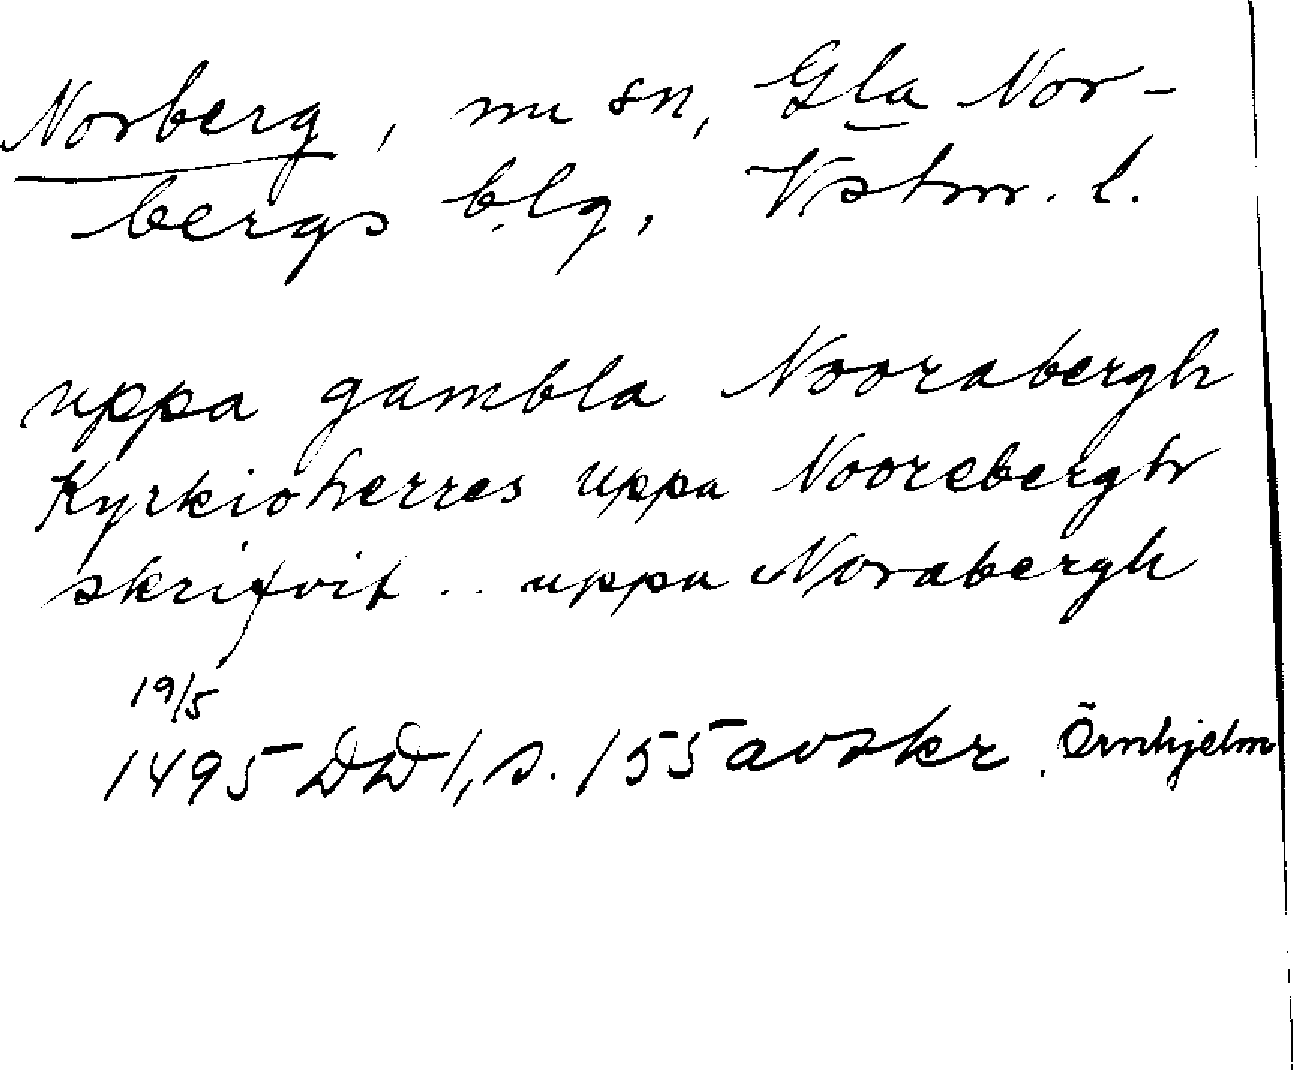 Norberg, nu sn, Gla Nor-
bergs blg, Vstm. l.
uppa gambla Noorabergh
Kyrkioherres uppa Noorebergh
skrifvit .. uppa Norabergh
19/5
1495 DD 1, s. 155 avskr. Örnhjelm